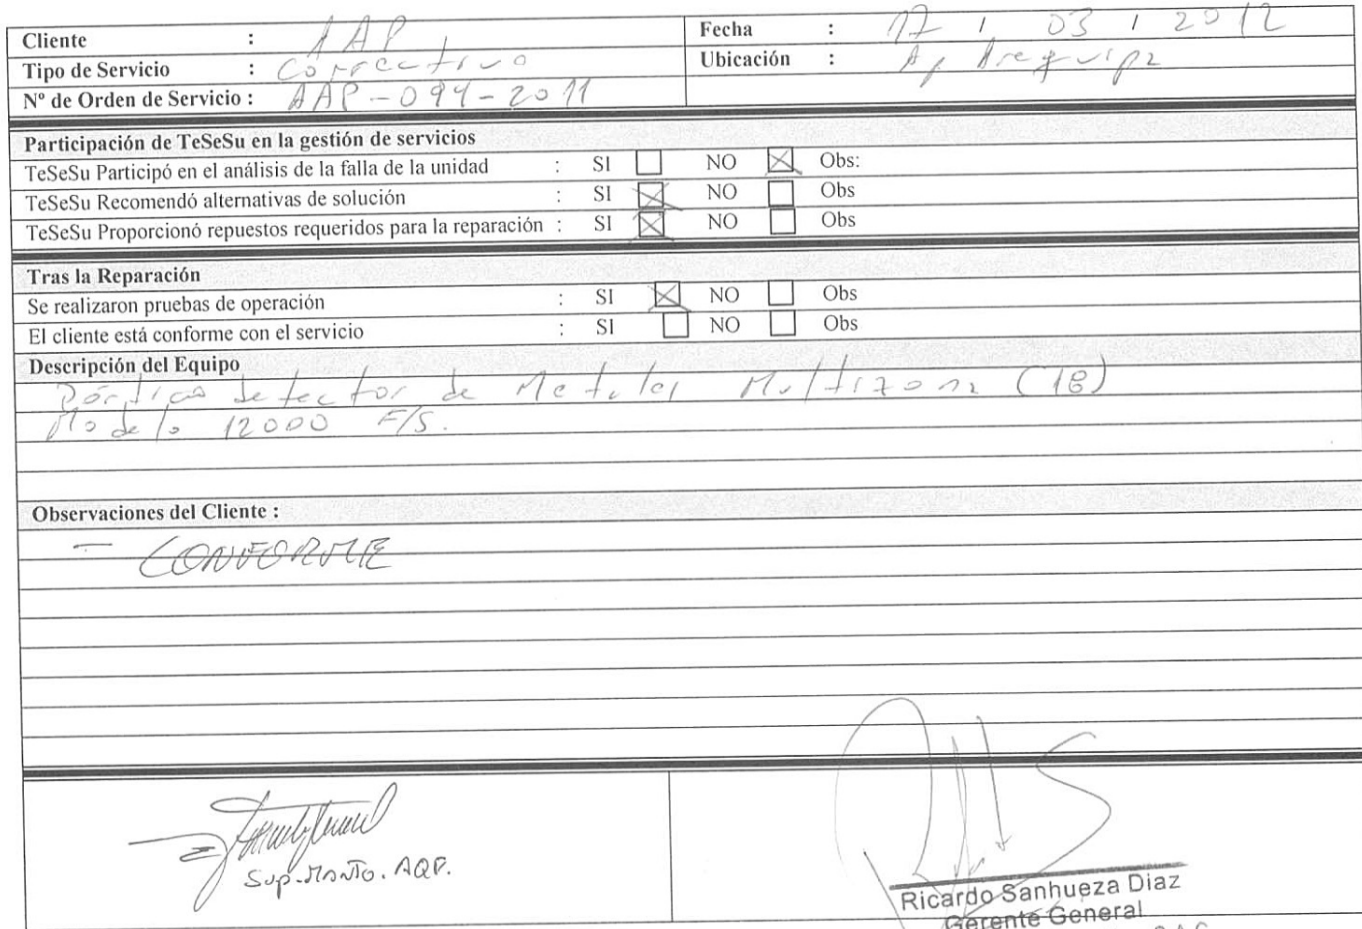 Cliente : AAP
Fecha : 17 / 03 / 2012
Tipo de Servicio : Correctivo
Ubicación : Ap. Arequipa
Nº de Orden de Servicio : AAP-094-2011
Participación de TeSeSu en la gestión de servicios
TeSeSu Participó en el análisis de la falla de la unidad : SI NO Obs:
TeSeSu Recomendó alternativas de solución : SI NO Obs
TeSeSu Proporcionó repuestos requeridos para la reparación : SI NO Obs
Tras la Reparación
Se realizaron pruebas de operación : SI NO Obs
El cliente está conforme con el servicio : SI NO Obs
Descripción del Equipo
Pórtico detector de Metales Multizona (18)
Modelo 12000 F/S.
Observaciones del Cliente :
- CONFORME
Sup. Manto. AQP.
Ricardo Sanhueza Diaz
Gerente General